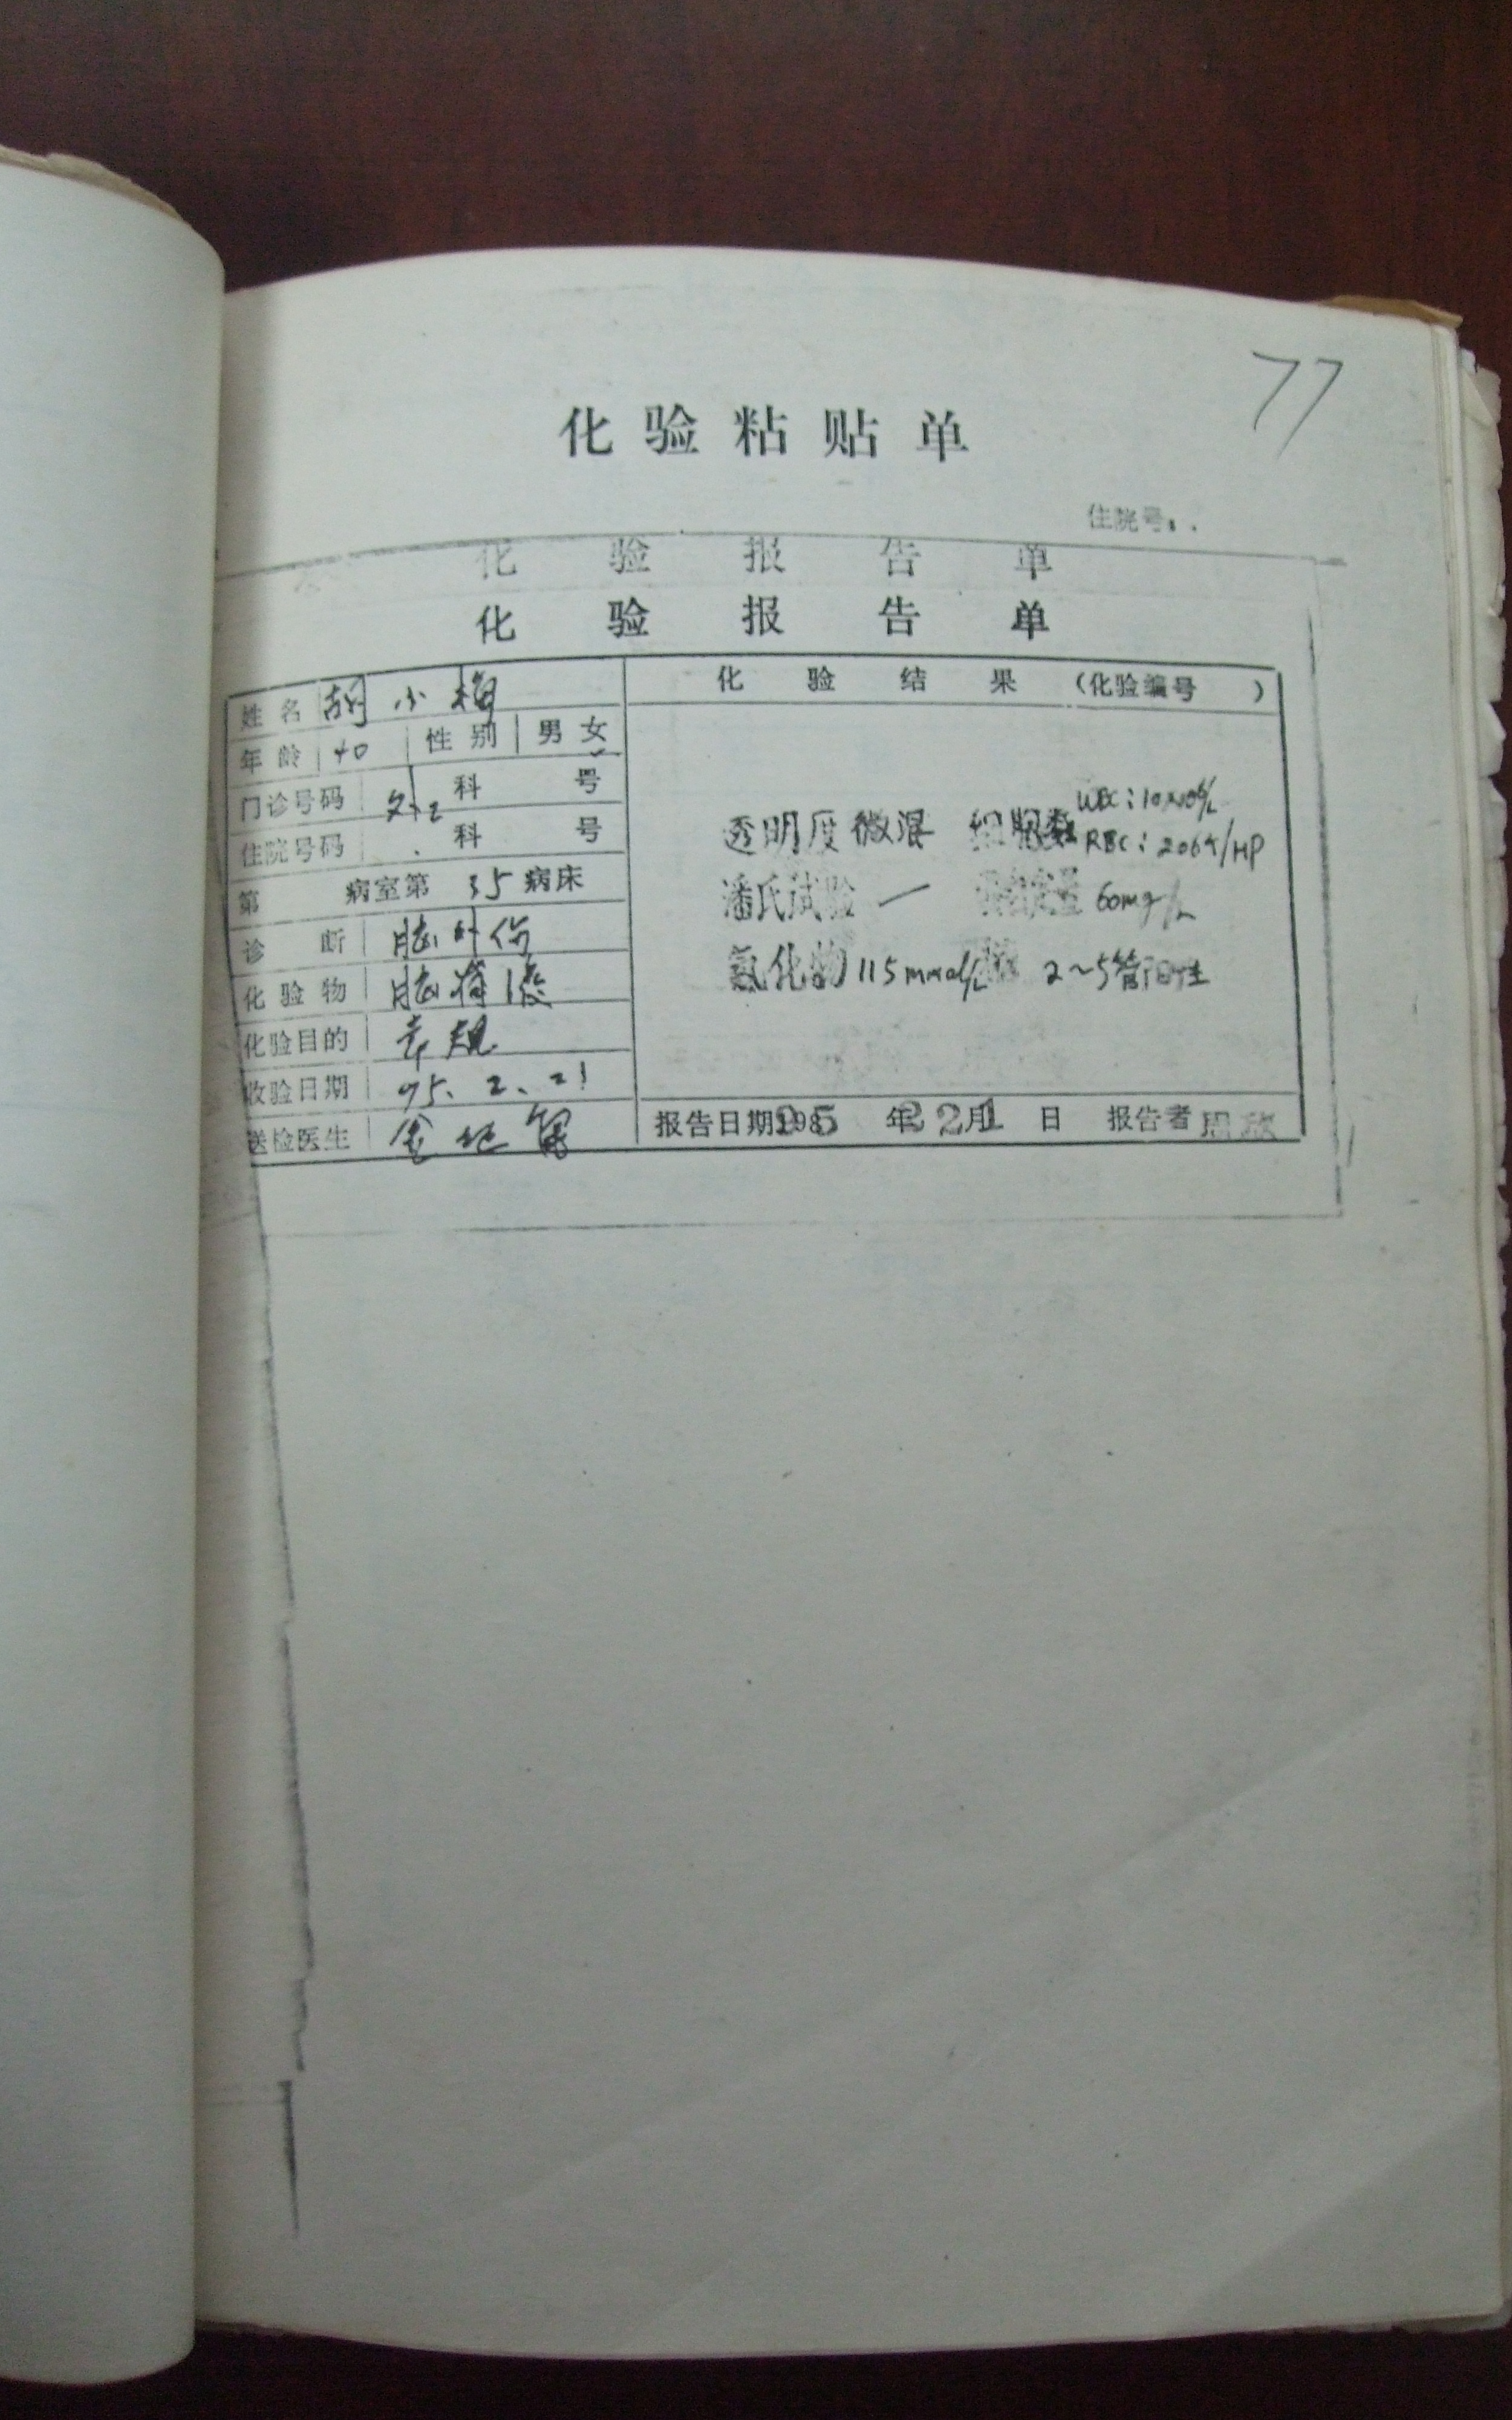 77
化验粘贴单
住院号：
化验报告单
化验报告单
姓名 胡小梅
年龄 40 性别 男 女
门诊号码 外2 科 号
住院号码 科 号
第 病室第 35 病床
诊断 脑外伤
化验物 脑脊液
化验目的 常规
收验日期 95.2.21
送检医生
化验结果 （化验编号 ）
透明度 微混 细胞数 WBC：10×10⁶/L
RBC：2064/HP
潘氏试验 — 60mg/L
氯化物 115mmol/L 糖 2～5管阳性
报告日期 198 95 年 2 月 21 日 报告者